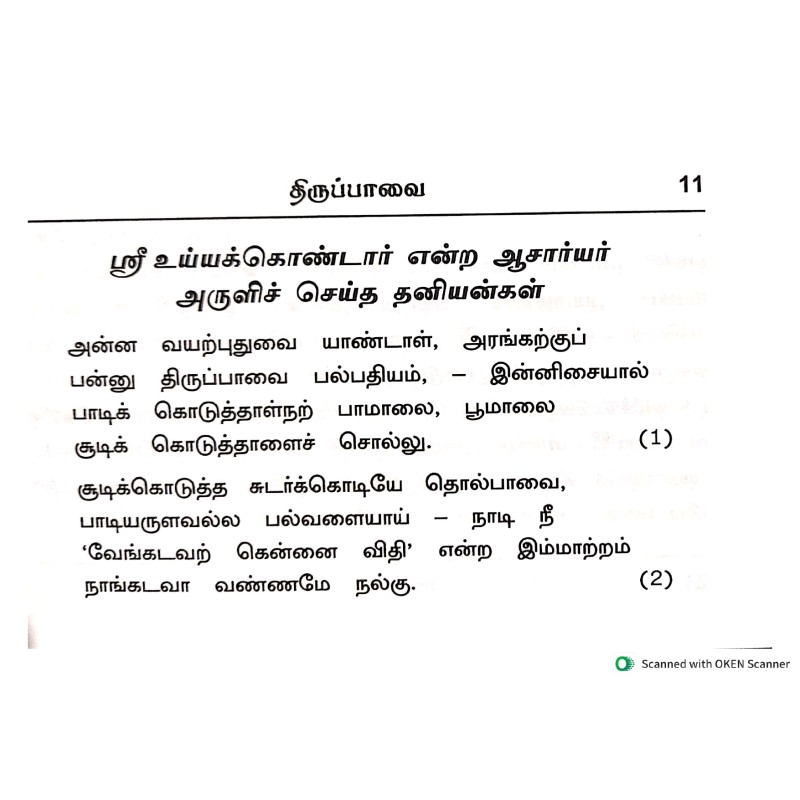 திருப்பாவை 11
ஸ்ரீ உய்யக்கொண்டார் என்ற ஆசார்யர்
அருளிச் செய்த தனியன்கள்
அன்ன வயற்புதுவை யாண்டாள், அரங்கற்குப்
பன்னு திருப்பாவை பல்பதியம், – இன்னிசையால்
பாடிக் கொடுத்தாள்நற் பாமாலை, பூமாலை
சூடிக் கொடுத்தாளைச் சொல்லு. (1)
சூடிக்கொடுத்த சுடர்க்கொடியே தொல்பாவை,
பாடியருளவல்ல பல்வளையாய் – நாடி நீ
‘வேங்கடவற் கென்னை விதி’ என்ற இம்மாற்றம்
நாங்கடவா வண்ணமே நல்கு. (2)
Scanned with OKEN Scanner